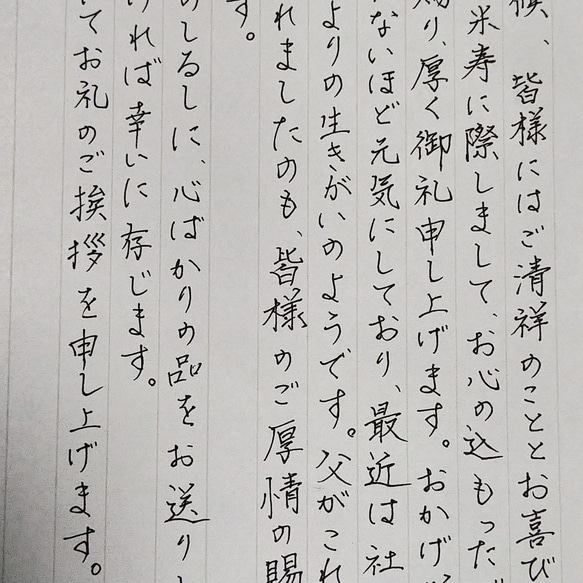 候、皆様にはご清祥のこととお喜び
米寿に際しまして、お心の込もった
賜り、厚く御礼申し上げます。おかげ
ないほど元気にしており、最近は社
よりの生きがいのようです。父がこれ
れましたのも、皆様のご厚情の賜
す。
のしるしに、心ばかりの品をお送りし
ければ幸いに存じます。
てお礼のご挨拶を申し上げます。